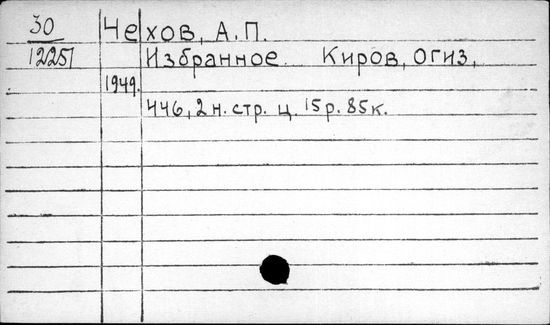 30 Чехов, А.П.
12251 Избранное. Киров, Огиз,
1949.
446, 2 н. стр. ц. 15р. 85к.